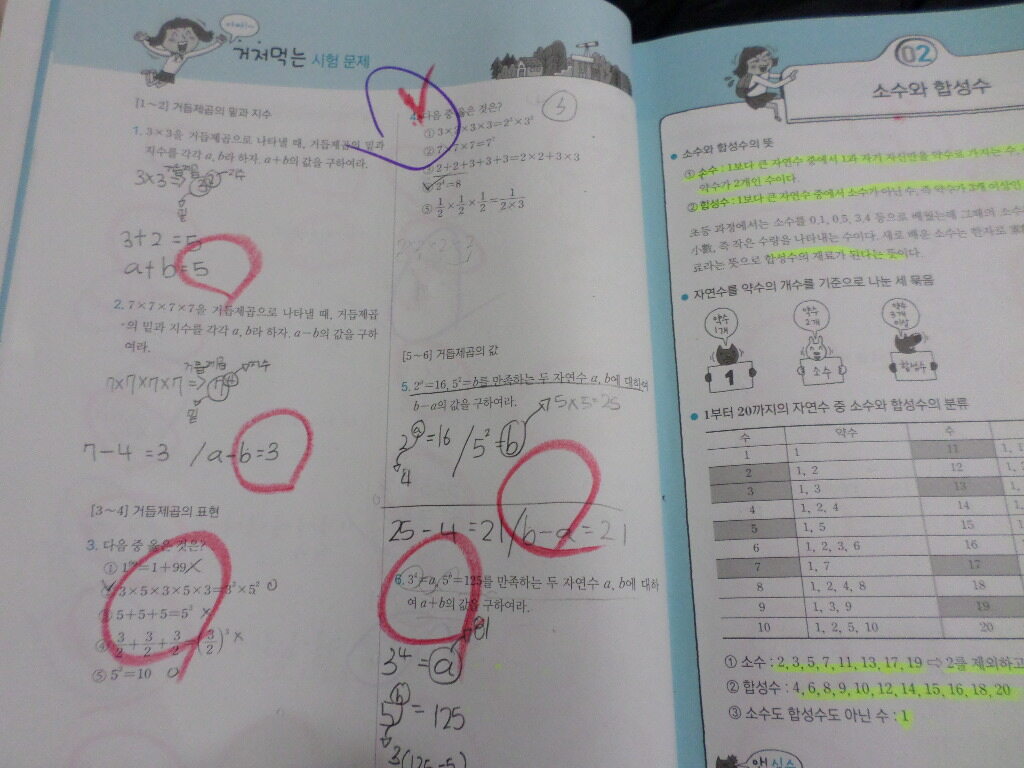 거저먹는 시험 문제
[1~2] 거듭제곱의 밑과 지수
1. 3×3을 거듭제곱으로 나타낼 때, 거듭제곱의 밑과
지수를 각각 a, b라 하자. a+b의 값을 구하여라.
거듭제곱
지수
3×3 ⇒ 3²
밑
3+2=5
a+b=5
2. 7×7×7×7을 거듭제곱으로 나타낼 때, 거듭제곱
의 밑과 지수를 각각 a, b라 하자. a-b의 값을 구하
여라.
거듭제곱
지수
7×7×7×7 ⇒ 7⁴
밑
7-4=3 / a-b=3
[3~4] 거듭제곱의 표현
3. 다음 중 옳은 것은?
=1+99 ×
3×5×3×5×3=3³×5² ○
③ 5+5+5=5³ ×
④ 3/2+3/2+3/2=(3/2)³ ×
⑤ 5²=10 ○
4. 다음 중 옳은 것은?
5
① 3×3×3×3=
② 7×7×7=
2+2+3+3+3=2×2+3×3
=8
⑤ 1/2×1/2×1/2=1/(2×3)
[5~6] 거듭제곱의 값
5. 2ᵃ=16, 5²=b를 만족하는 두 자연수 a, b에 대하여
b-a의 값을 구하여라.
5×5=25
2ᵃ=16 / 5²=b
4
25-4=21 / b-a=21
6. 3⁴=a, 5ᵇ=125를 만족하는 두 자연수 a, b에 대하
여 a+b의 값을 구하여라.
81
3⁴=a
5ᵇ=125
3(125=5)
02
소수와 합성수
● 소수와 합성수의 뜻
① 소수 : 1보다 큰 자연수 중에서 1과 자기 자신만을 약수로 가지는 수,
약수가 2개인 수이다.
② 합성수 : 1보다 큰 자연수 중에서 소수가 아닌 수, 즉 약수가 3개 이상인
초등 과정에서는 소수를 0.1, 0.5, 3.4 등으로 배웠는데 그때의 소수
小數, 즉 작은 수량을 나타내는 수이다. 새로 배운 소수는 한자로
료라는 뜻으로 합성수의 재료가 된다는 뜻이다.
● 자연수를 약수의 개수를 기준으로 나눈 세 묶음
약수 1개
약수 2개
약수 3개 이상
1
소수
합성수
● 1부터 20까지의 자연수 중 소수와 합성수의 분류
수 약수 수
1 1 11 1,
2 1, 2 12 1,
3 1, 3 13 1,
4 1, 2, 4 14 1,
5 1, 5 15 1
6 1, 2, 3, 6 16
7 1, 7 17
8 1, 2, 4, 8 18
9 1, 3, 9 19
10 1, 2, 5, 10 20
① 소수 : 2, 3, 5, 7, 11, 13, 17, 19 ⇨ 2를 제외하고
② 합성수 : 4, 6, 8, 9, 10, 12, 14, 15, 16, 18, 20
③ 소수도 합성수도 아닌 수 : 1